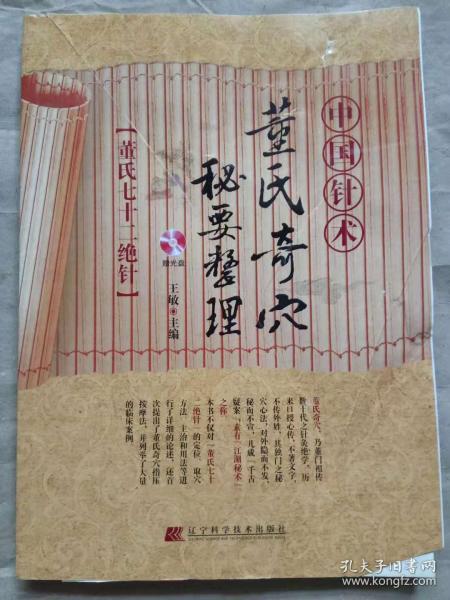 中国针术
董氏奇穴
秘要整理
【董氏七十二绝针】
赠光盘
王敏◉主编
董氏奇穴，乃董门祖传
数十代之针灸绝学，历
来口授心传，不著文字，
不传外姓，其独门之秘
穴心法，对外隐而不发，
秘而不宣，几成“千古
疑案”，素有“江湖秘术”
之称。
本书不仅对“董氏七十
二绝针”的定位、取穴
方法、主治和用法等进
行了详细的论述，还首
次提出了董氏奇穴指压
按摩法，并列举了大量
的临床案例。
辽宁科学技术出版社
LIAONING SCIENCE AND TECHNOLOGY PUBLISHING HOUSE
孔夫子旧书网
www.kongfz.com